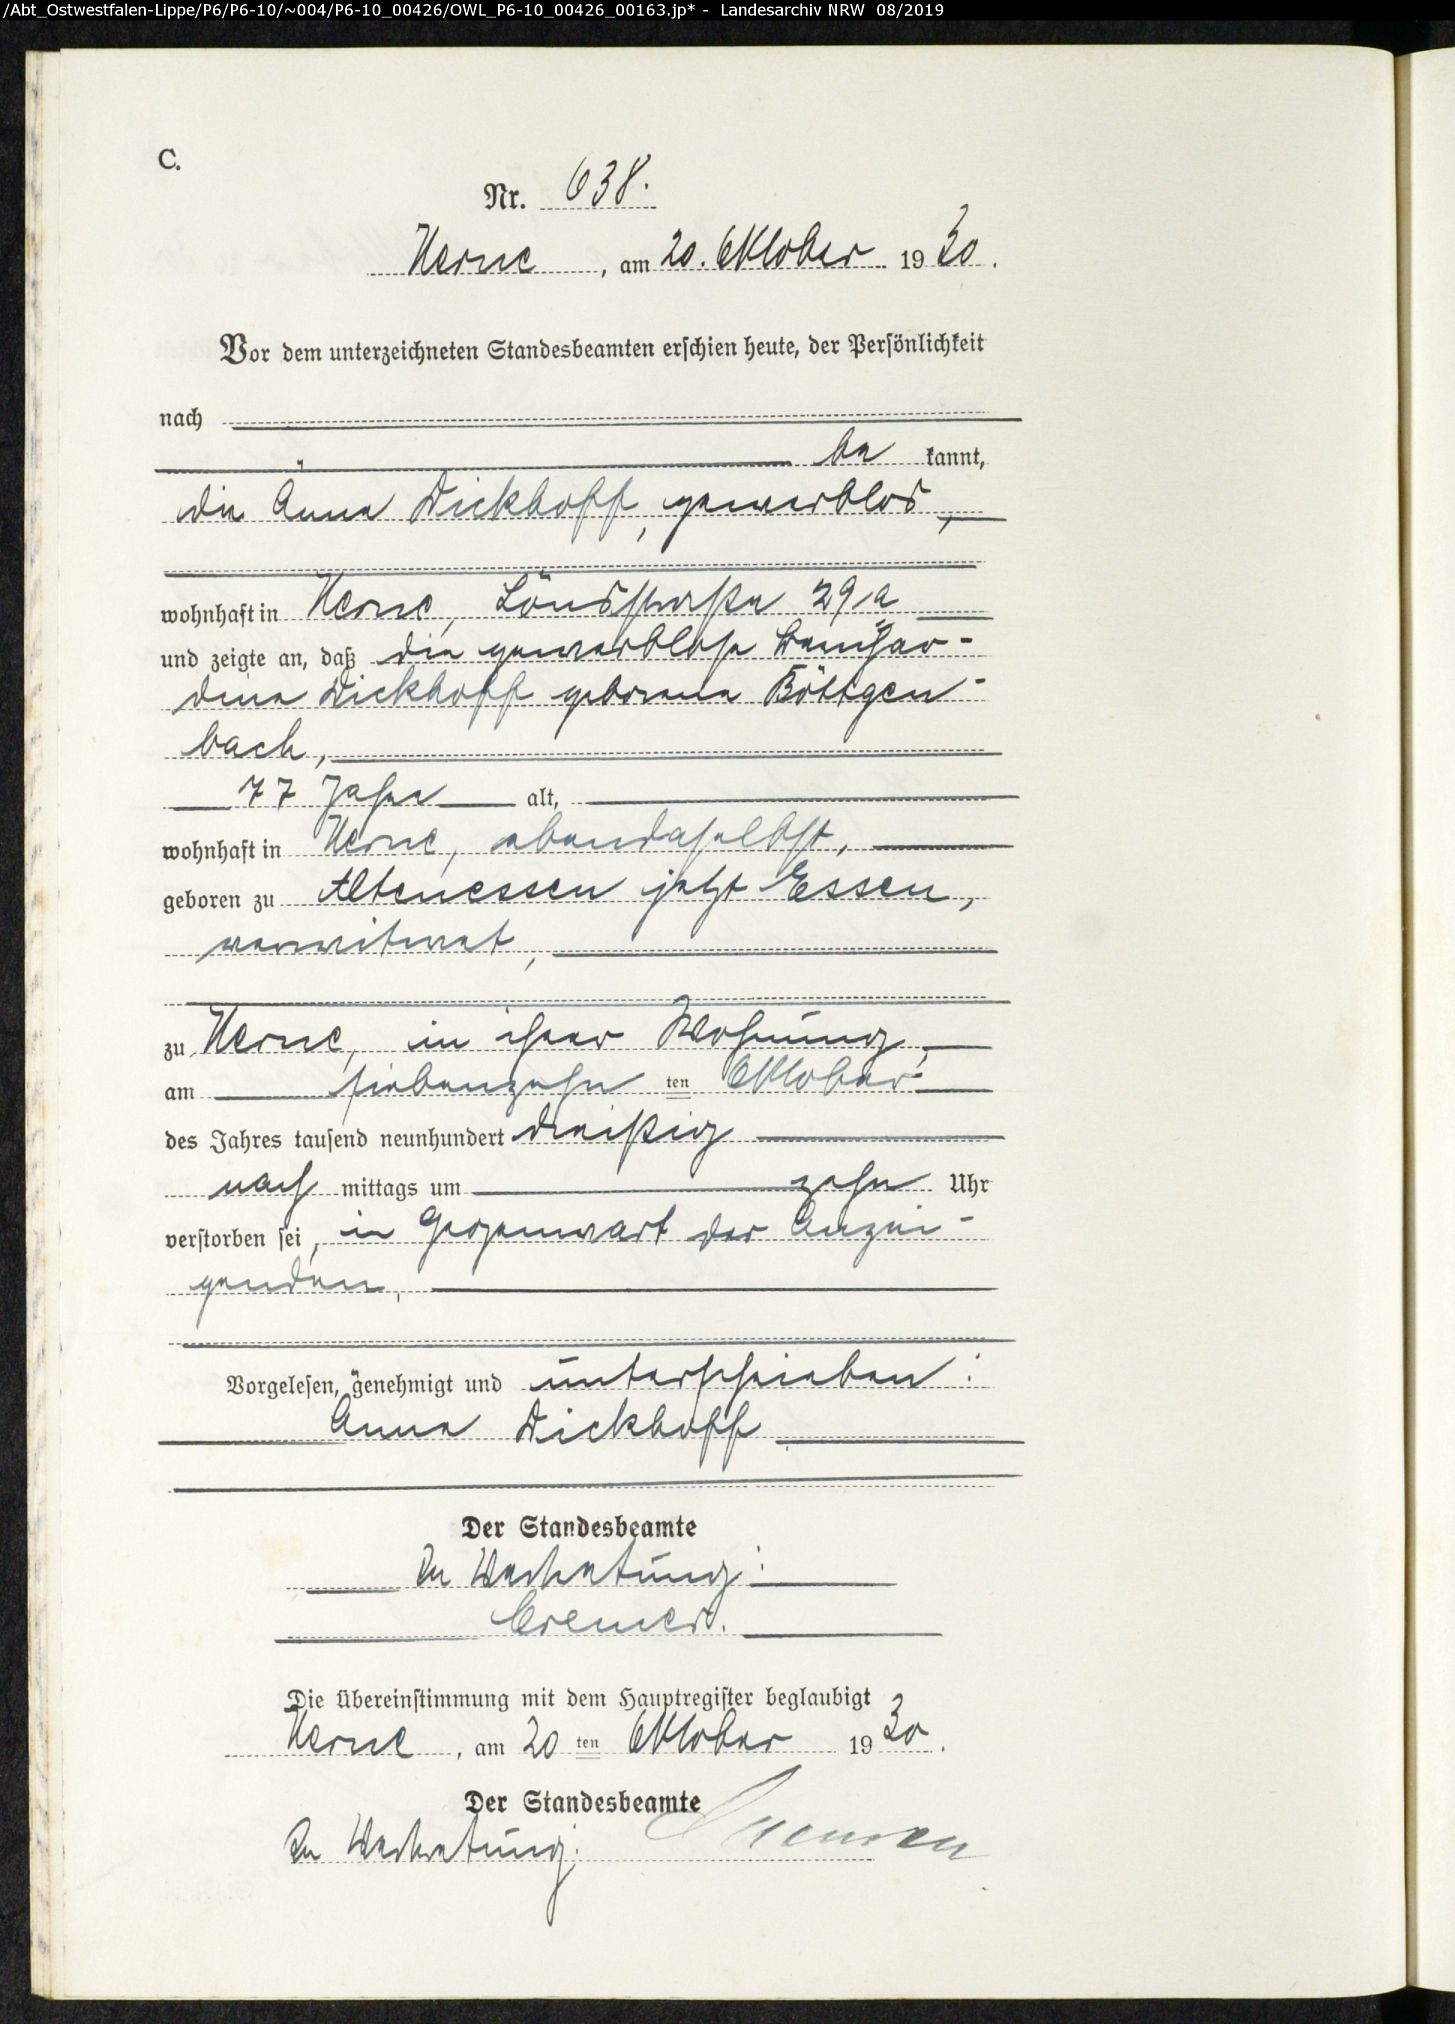 /Abt_Ostwestfalen-Lippe/P6/P6-10/~004/P6-10_00426/OWL_P6-10_00426_00163.jp* - Landesarchiv NRW 08/2019
C.
Nr. 638.
Herne, am 20. Oktober 1930.
Vor dem unterzeichneten Standesbeamten erschien heute, der Persönlichkeit
nach
be kannt,
die Änne Dickhoff, gewerblos,
wohnhaft in Herne, Lönsstraße 29a
und zeigte an, daß die gewerblose Bernhar-
dine Dickhoff geborene Böttgen-
bach,
77 Jahre alt,
wohnhaft in Herne, ebendaselbst,
geboren zu Altenessen jetzt Essen,
verwitwet,
zu Herne, in ihrer Wohnung,
am siebenzehn ten Oktober
des Jahres tausend neunhundert dreißig
nach mittags um zehn Uhr
verstorben sei, in Gegenwart der Anzei-
genden,
Vorgelesen, genehmigt und unterschrieben:
Änne Dickhoff
Der Standesbeamte
In Vertretung:
Cremer.
Die Übereinstimmung mit dem Hauptregister beglaubigt
Herne, am 20 ten Oktober 1930.
Der Standesbeamte
In Vertretung: